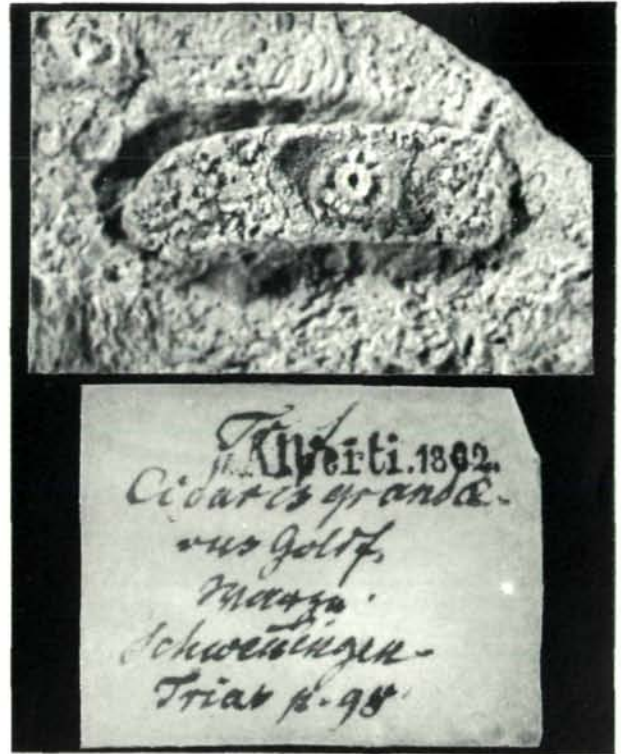 v. Alberti.1862.
Cidaris grandæ-
vus Goldf.
Schwenningen
Trias p. 98